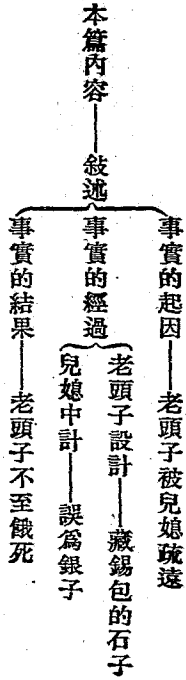 本篇內容——敍述
事實的起因——老頭子被兒媳疏遠
事實的經過
老頭子設計——藏錫包的石子
兒媳中計——誤爲銀子
事實的結果——老頭子不至餓死